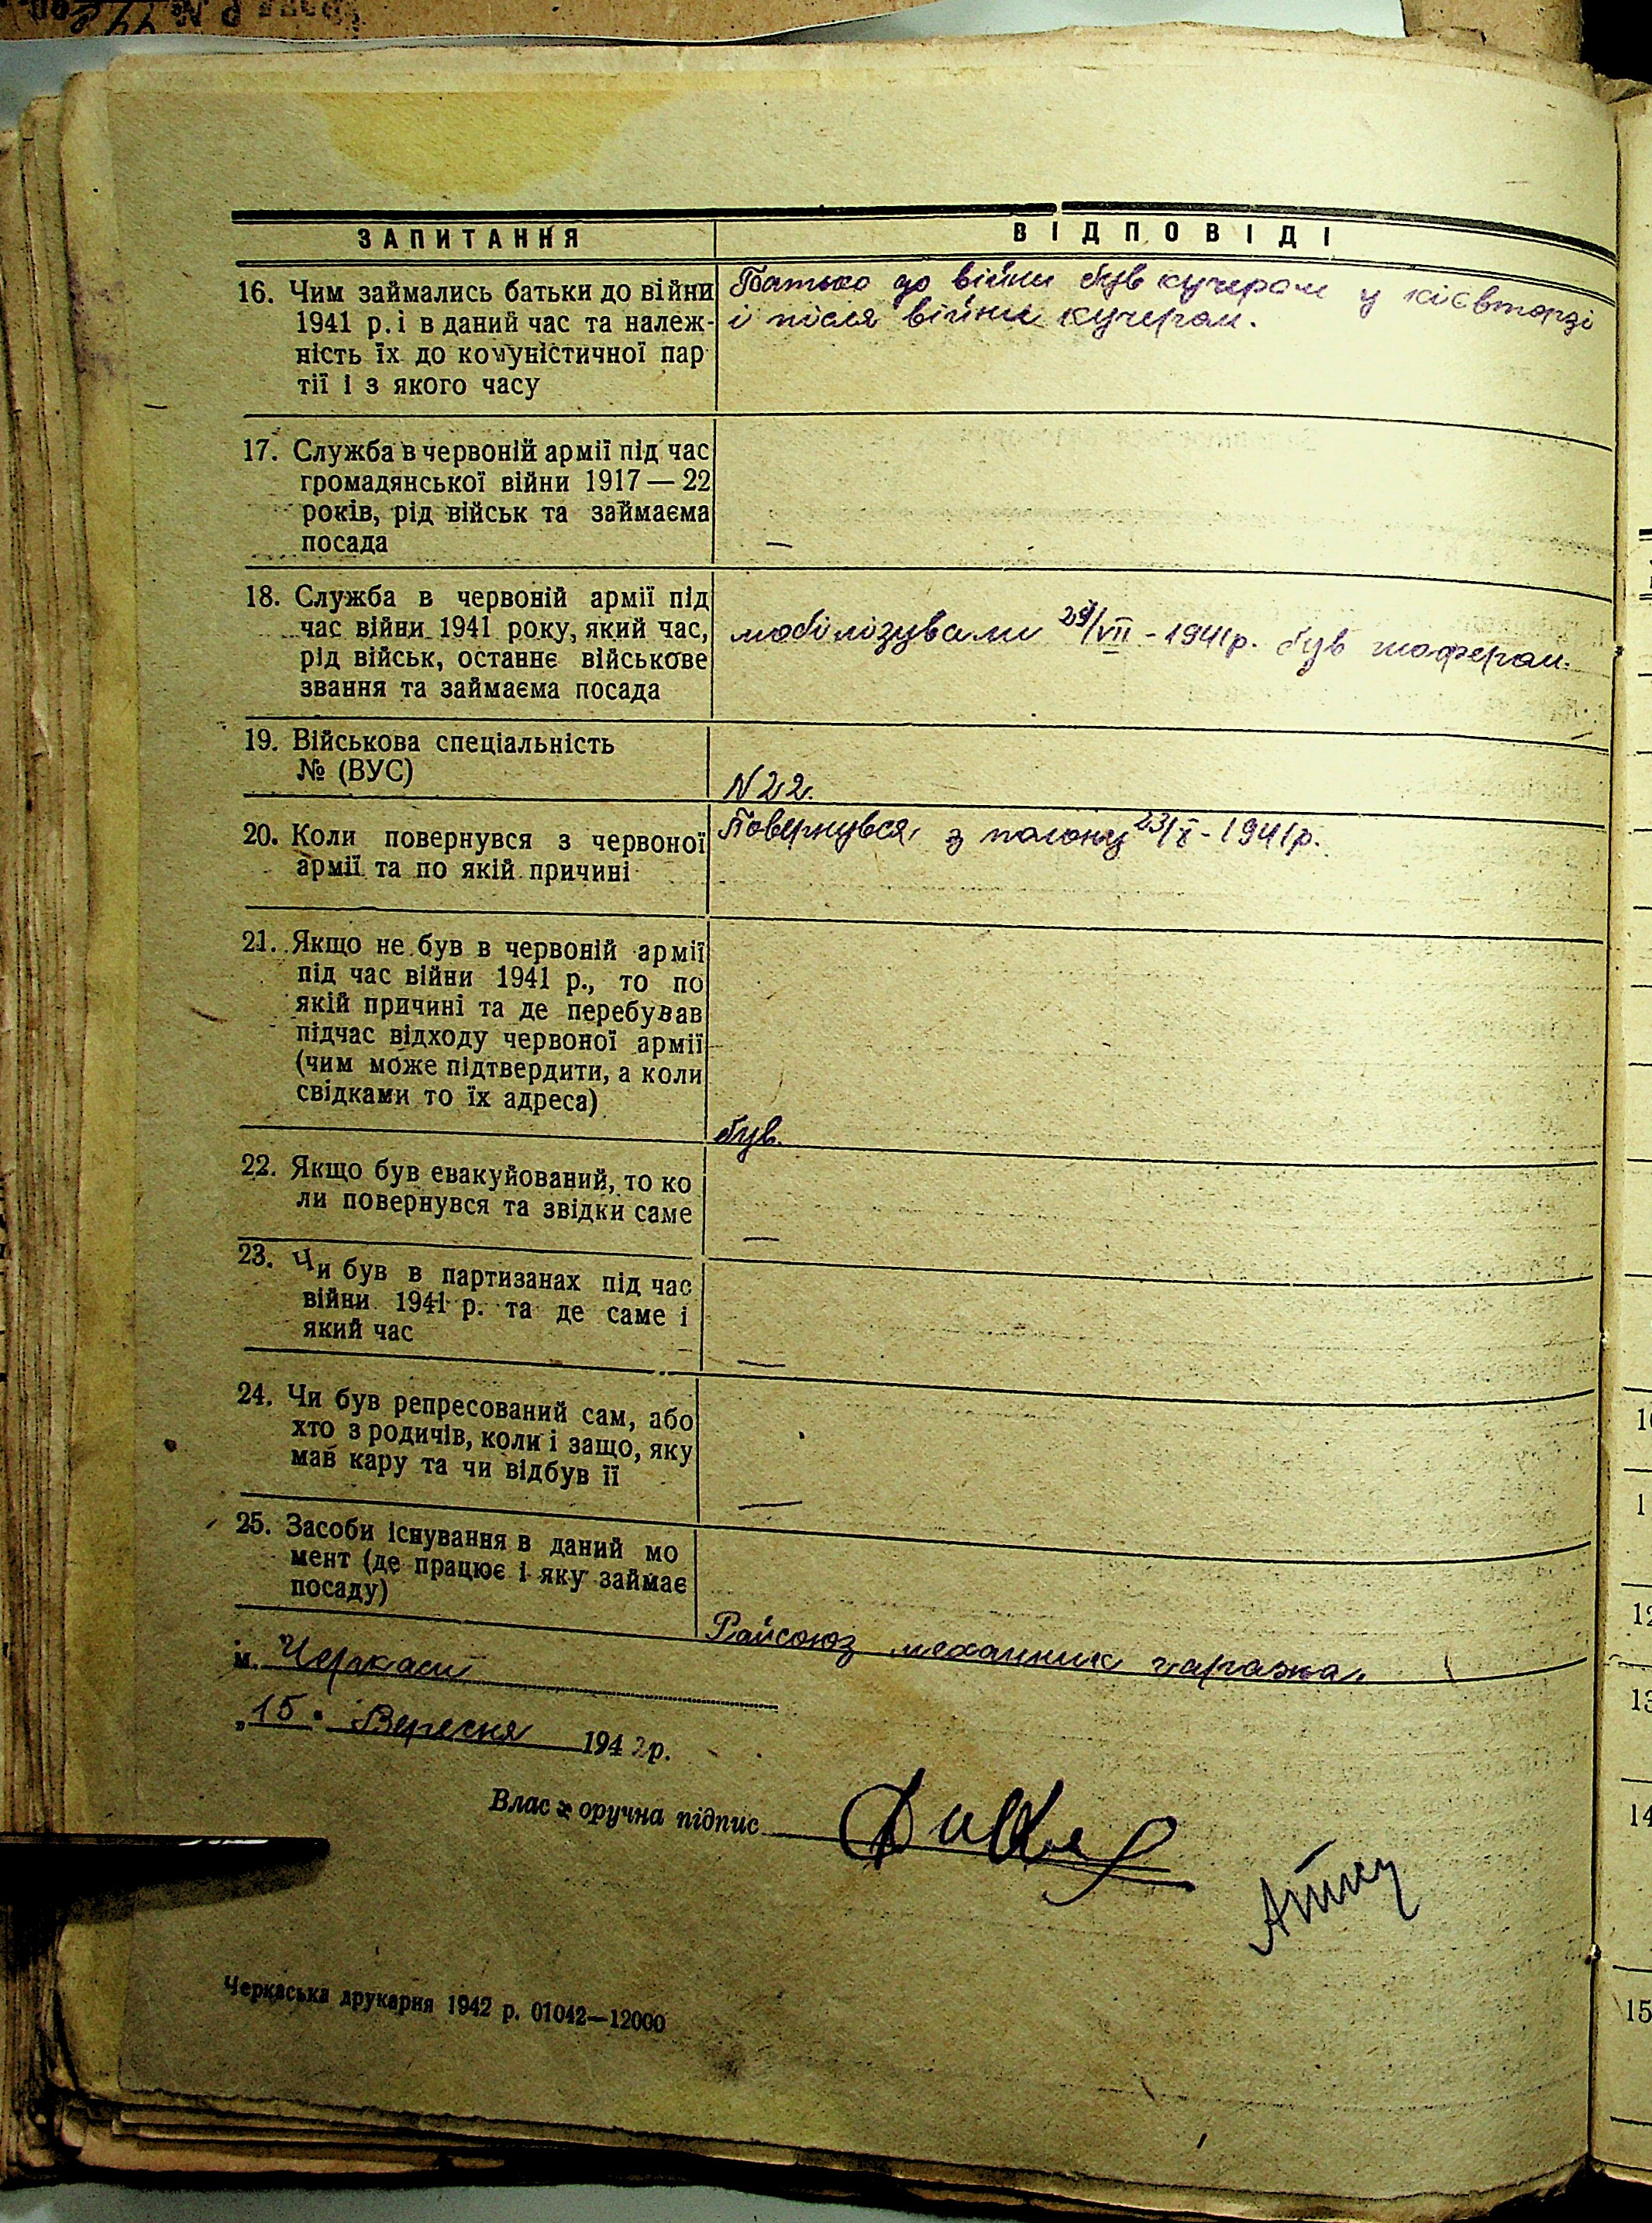 ЗАПИТАННЯ
ВІДПОВІДІ
16. Чим займались батьки до війни
1941 р. і в даний час та належ-
ність їх до комуністичної пар
тії і з якого часу
Батько до війни був кучером у
і після війни кучером.
17. Служба в червоній армії під час
громадянської війни 1917 — 22
років, рід військ та займаєма
посада
—
18. Служба в червоній армії під
час війни 1941 року, який час,
рід військ, останнє військове
звання та займаєма посада
мобілізували 29/VII - 1941 р. був шофером.
19. Військова спеціальність
№ (ВУС)
N 22.
20. Коли повернувся з червоної
армії та по якій причині
Повернувся з полону 23/X - 1941 р.
21. Якщо не був в червоній армії
під час війни 1941 р., то по
якій причині та де перебував
підчас відходу червоної армії
(чим може підтвердити, а коли
свідками то їх адреса)
був.
22. Якщо був евакуйований, то ко
ли повернувся та звідки саме
—
23. Чи був в партизанах під час
війни 1941 р. та де саме і
який час
—
24. Чи був репресований сам, або
хто з родичів, коли і защо, яку
мав кару та чи відбув її
—
25. Засоби існування в даний мо
мент (де працює і яку займає
посаду)
Райсоюз механник гаража.
м. Черкаси
„15" Вересня 1942 р.
Власноручна підпис
Черкаська друкарня 1942 р. 01042—12000